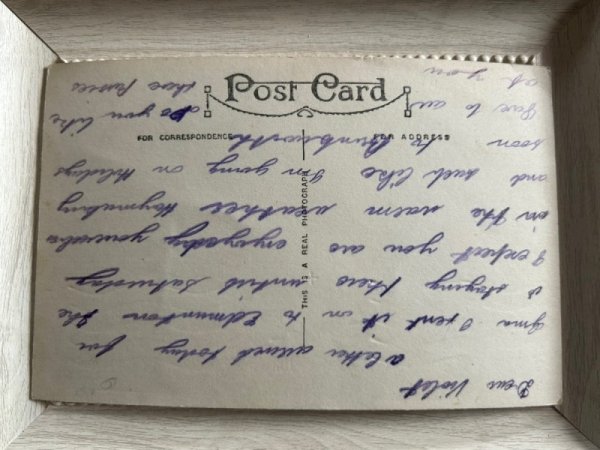 Post Card
FOR CORRESPONDENCE
FOR ADDRESS
THIS IS A REAL PHOTOGRAPH
Dear Violet
a letter arrived today for
Gma I sent it on to Edmunton She
is staying there until Saturday
I expect you are enjoying yourselves
in the warm weather Haymaking
and such like I'm going on Holidays
soon to
Love to all Do you like
these